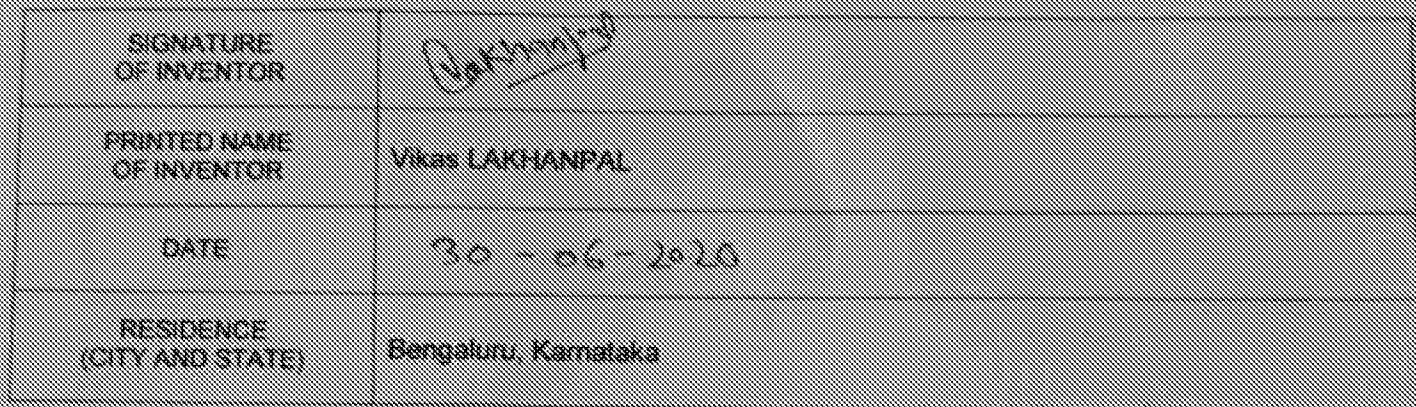 SIGNATURE
OF INVENTOR
Lakhanpal
PRINTED NAME
OF INVENTOR
Vikas LAKHANPAL
DATE
30-06-2020
RESIDENCE
(CITY AND STATE)
Bengaluru, Karnataka